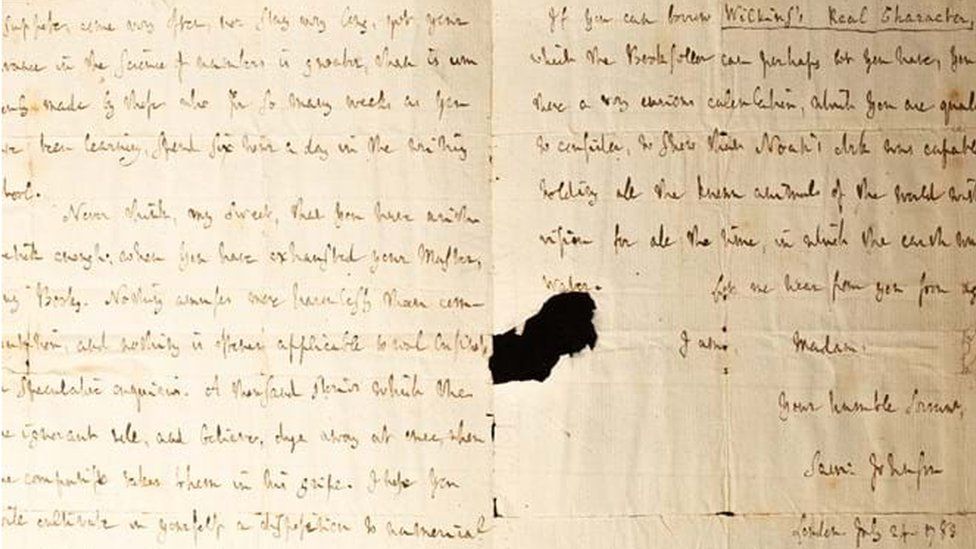 suppose, come very often, nor stay very long, yet your
vance in the science of numbers is greater, than is com
only made by those who for so many weeks as you
ve been learning, spend six hours a day in the writing
hool.
Never think, my Sweet, that you have arith
metick enough, when you have exhausted your Master,
buy Books. Nothing amuses more harmlessly than com-
putation, and nothing is oftener applicable to real business
or speculative enquiries. A thousand stories which the
ignorant tell, and believe, dye away at once, when
the computist takes them in his gripe. I hope you
will cultivate in yourself a disposition to numerical
If you can borrow Wilkins's Real Character,
which the Bookseller can perhaps let you have, you
there a very curious calculation, which you are quali
to consider, to show that Noah's Ark was capable
holding all the known animals of the world with
vision for all the time, in which the earth was
water. Let me hear from you soon ag
I am, Madam,
Your humble Servant,
Sam: Johnson
London July 24 1783